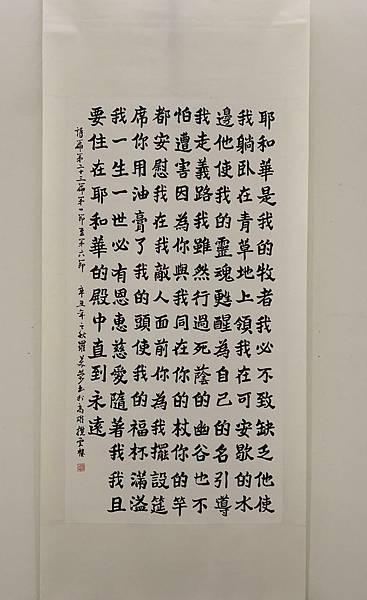 耶和華是我的牧者我必不致缺乏他使
我躺臥在青草地上領我在可安歇的水
邊他使我的靈魂甦醒為自己的名引導
我走義路我雖然行過死蔭的幽谷也不
怕遭害因為你與我同在你的杖你的竿
都安慰我在我敵人面前你為我擺設筵
席你用油膏了我的頭使我的福杯滿溢
我一生一世必有恩惠慈愛隨著我我且
要住在耶和華的殿中直到永遠
詩篇第二十三篇第一節至第六節 辛丑年之秋羅